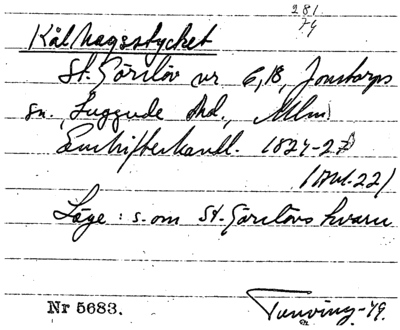 281
74
Kålhagsstycket
St. Görslöv nr 6,18, Jonstorps
sn, Luggude hd., Mlm
Enskifteshandl. 1824-27
(Akt. 22)
Läge: s. om St. Görslövs kvarn
Nr 5683.